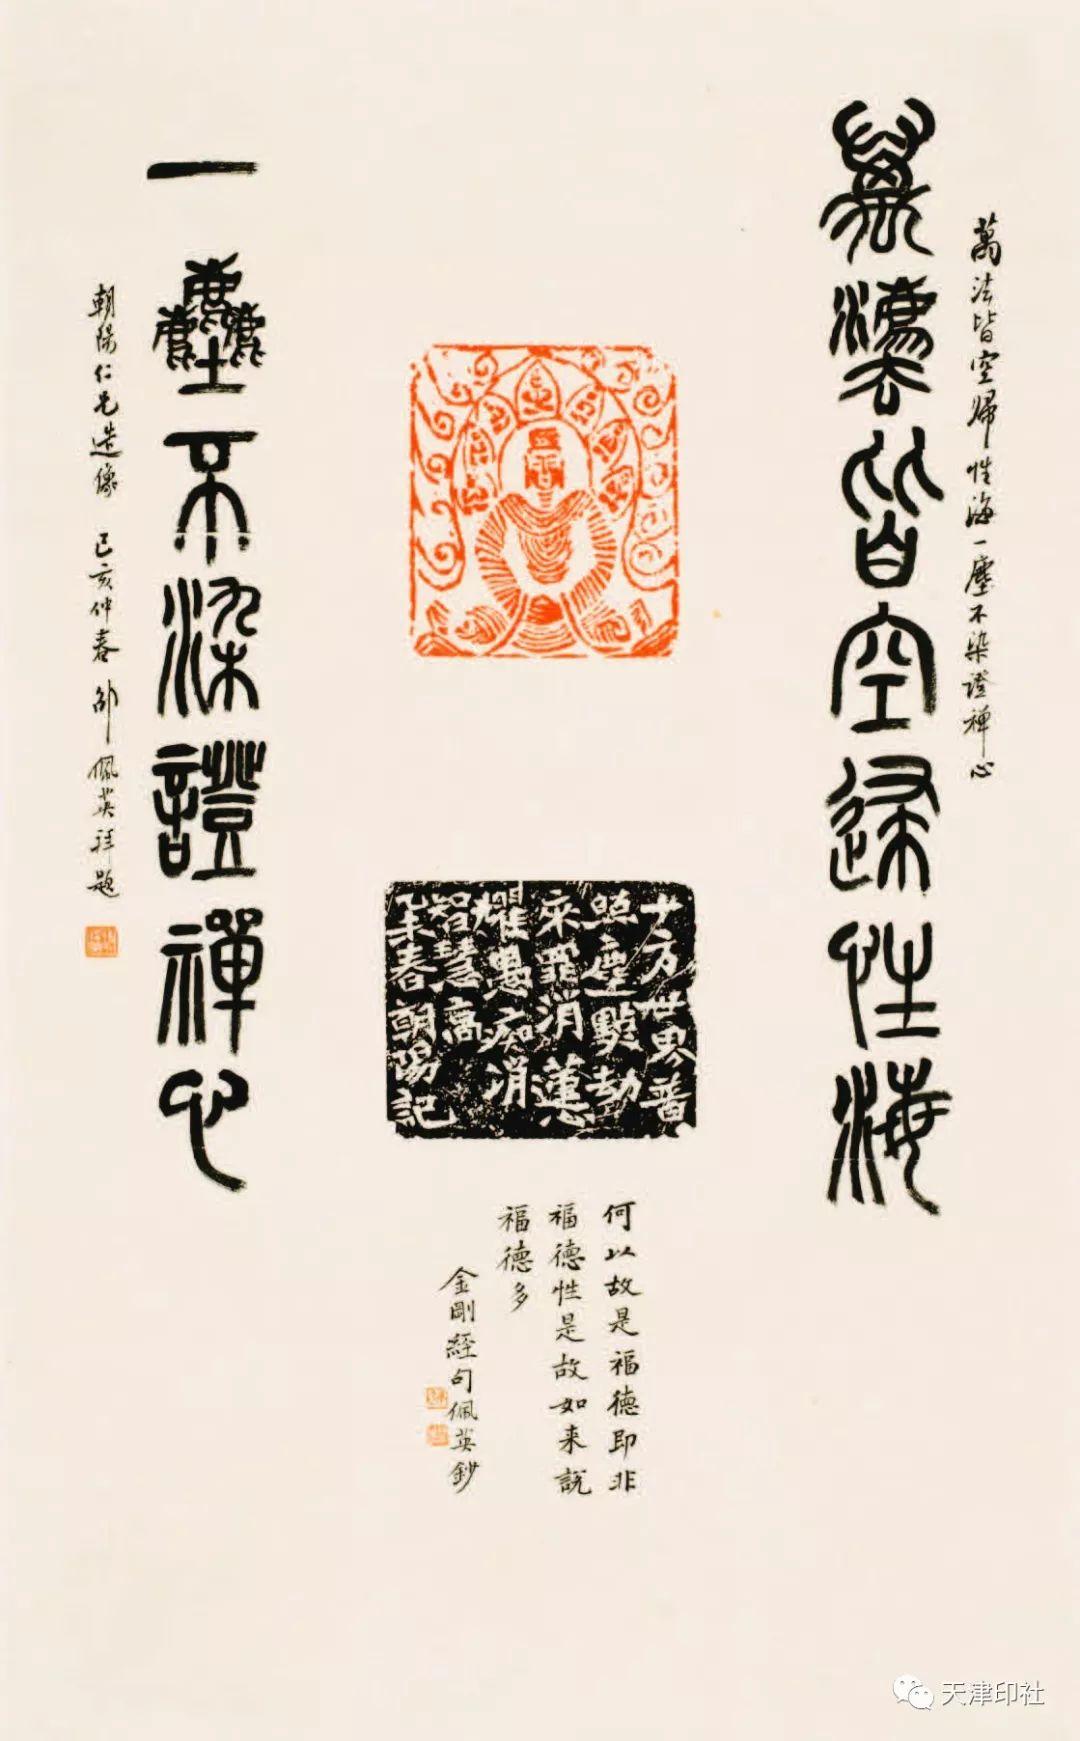 萬法皆空歸性海一塵不染證禪心
萬灋皆空歸性海
十方世界普
照塵點劫
來罪消
耀愚痴消
智慧高
乙未春朝陽記
何以故是福德即非
福德性是故如来說
福德多
金剛經句佩英鈔
一塵不染證禪心
朝陽仁兄造像 己亥仲春 邵佩英拜題
天津印社